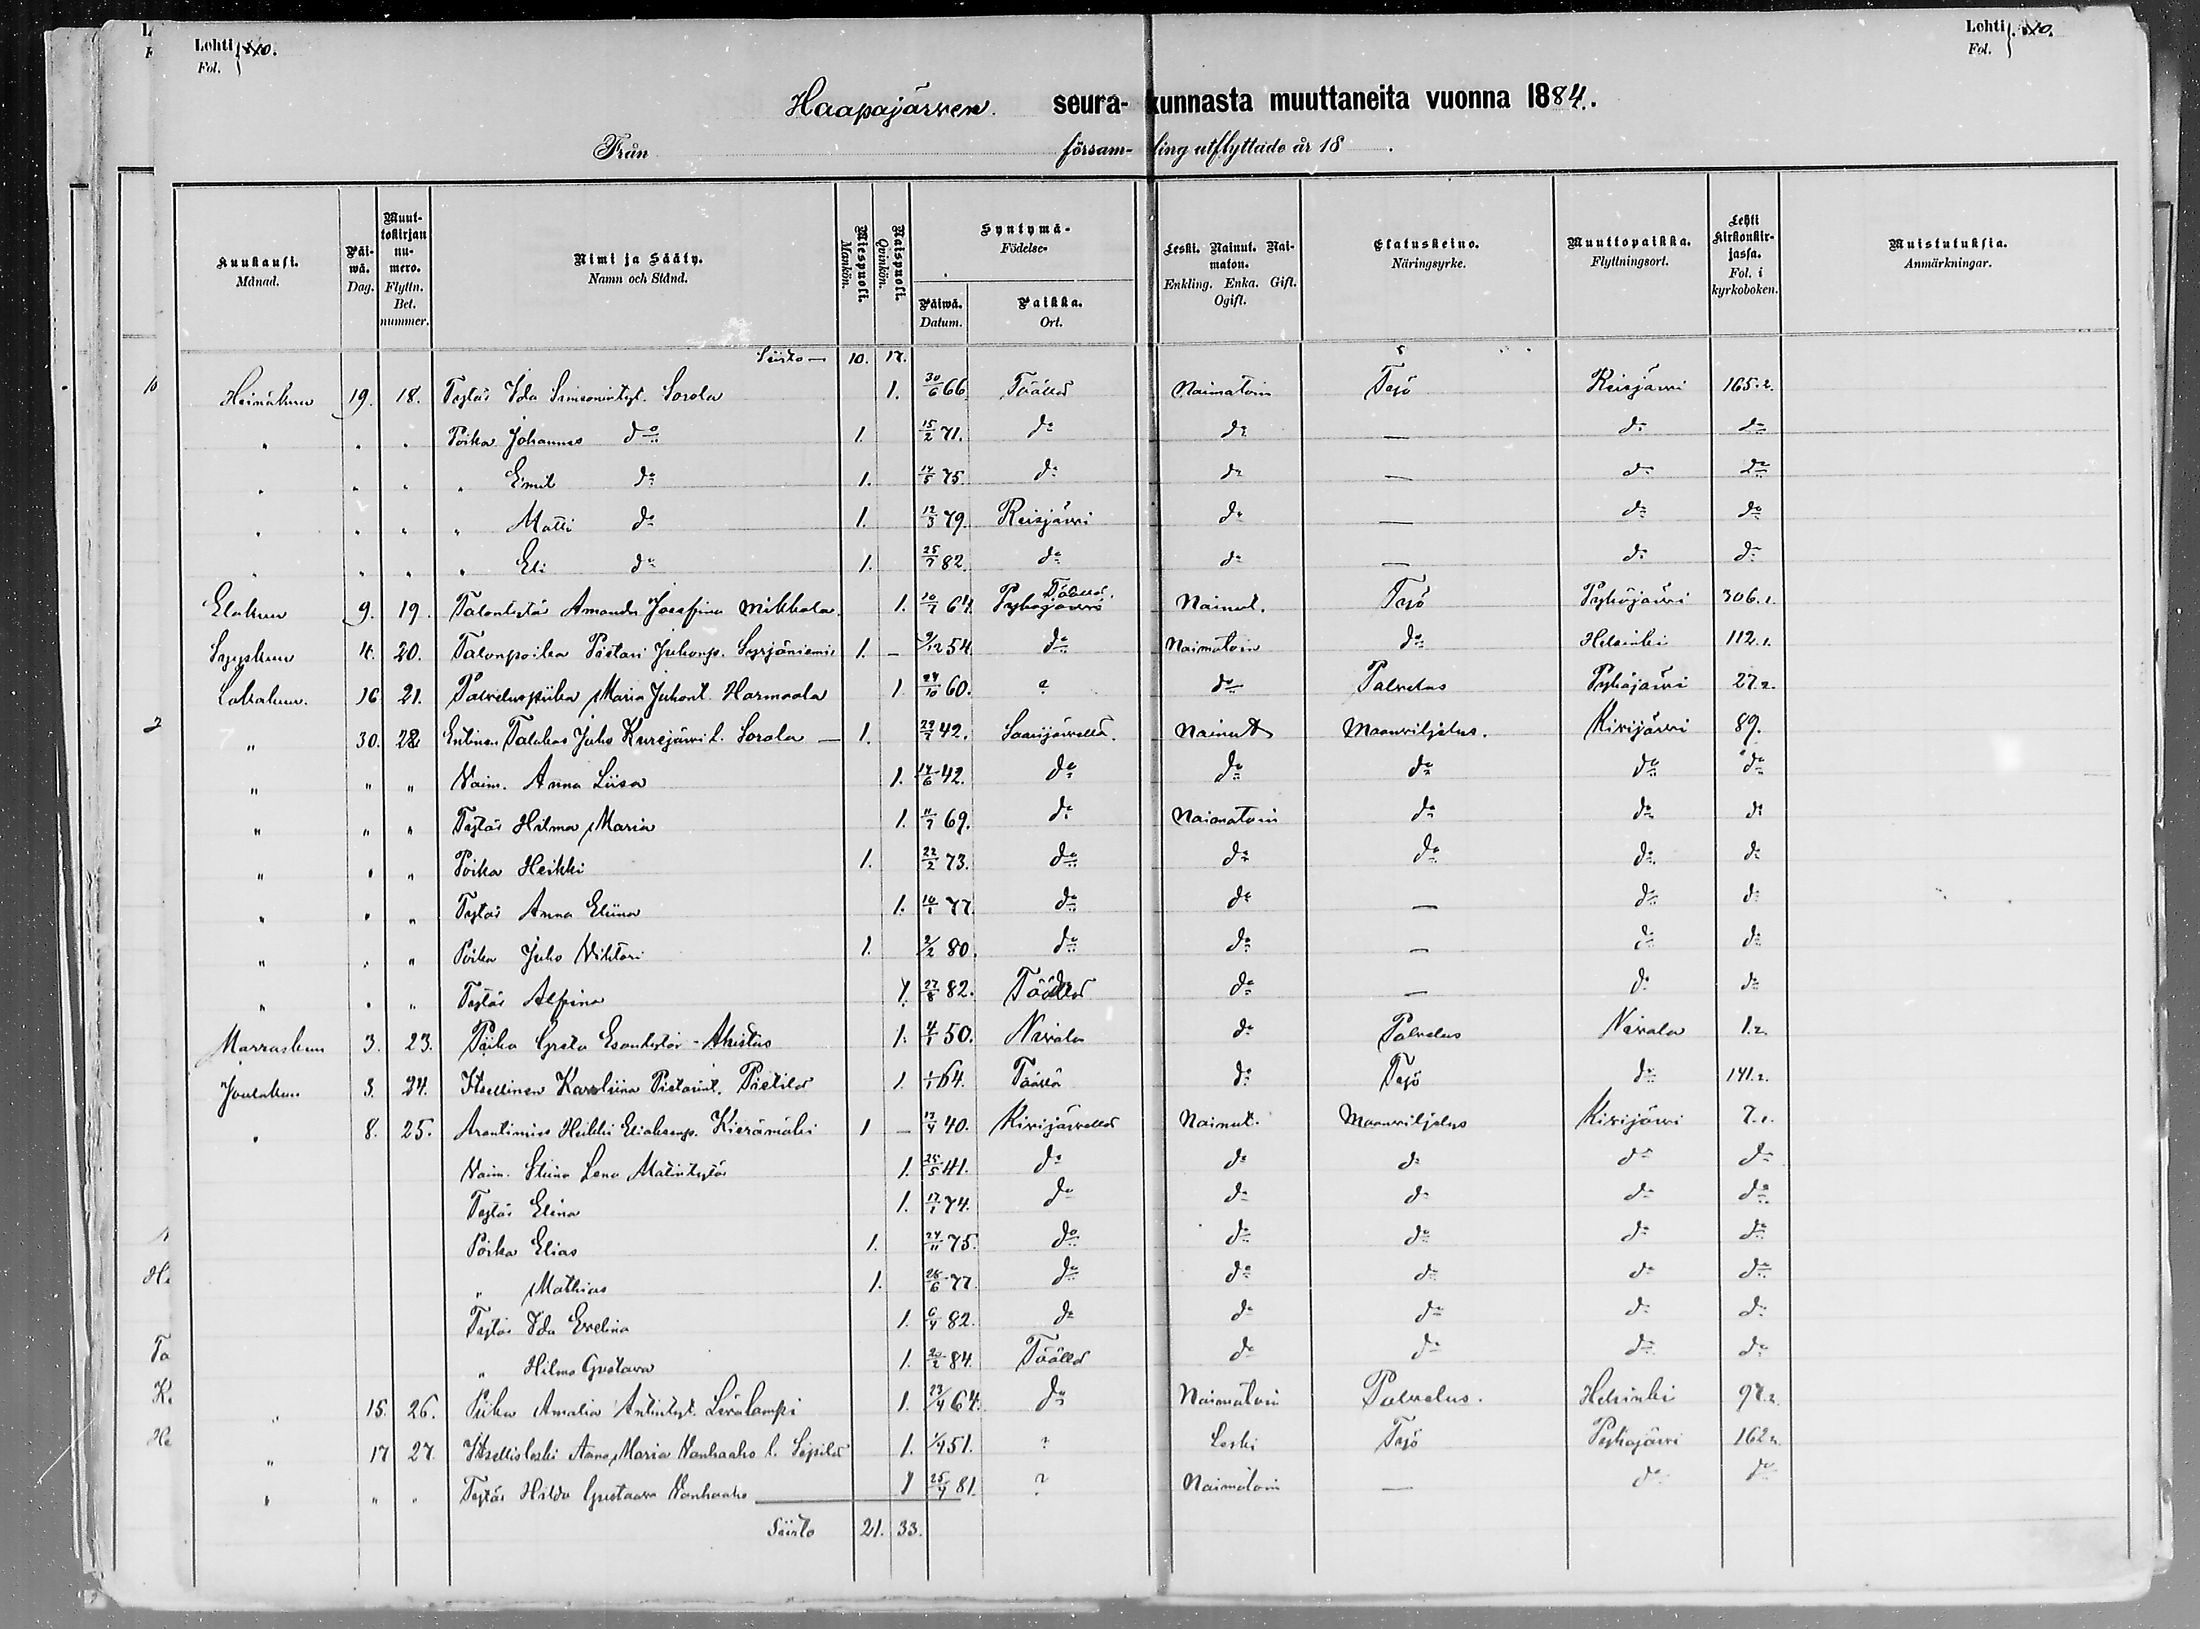 Lehti
Fol.
Lehti
Fol.
Haapajärven seurakunnasta muuttaneita vuonna 1884.
Från församling utflyttade år 18 .
Kuukausi. Månad. | Päiwä. Dag. | Muuttokirjan numero. Flyttn. Bet. nummer. | Nimi ja Sääty. Namn och Stånd. | Miespuoli. Mankön. | Naispuoli. Qvinkön. | Syntymä- Födelse- Päiwä. Datum. | Paikka. Ort. | Leski. Nainut. Naimaton. Enkling. Enka. Gift. Ogift. | Elatuskeino. Näringsyrke. | Muuttopaikka. Flyttningsort. | Lehti Kirkonkirjassa. Fol. i kyrkoboken. | Muistutuksia. Anmärkningar.
Siirto — 10. 17.
Heinäkuu 19. 18. Tytär Ida Simsonintyt. Sorola 1. 30/6 66 Täällä Naimatoin Työ Reisjärvi 165.2.
" " " Poika Johannes do 1. 15/2 71. do do — do do
" " " " Emil do 1. 14/5 75. do do — do do
" " " " Matti do 1. 12/3 79. Reisjärvi do — do do
" " " " Eli do 1. 25/7 82. do do — do do
Elokuu 9. 19. Talontytär Amanda Josefina Mikkola. 1. 10/7 64. Pyhäjärvi Täällä. Nainut. Työ Pyhäjärvi 306.1.
Syyskuu 4. 20. Talonpoika Pietari Juhonp. Syrjäniemi 1. – 9/12 54. do Naimatoin do Helsinki 112.1.
Lokakuu. 16 21. Palveluspiika Maria Juhont. Harmaala 1. 24/10 60. ? do Palvelus Pyhäjärvi 27.2.
" 30. 22. Entinen Talokas Juho Kurejärvi l. Sorola — 1. 29/7 42. Saarijärvellä. Nainut Maanviljelus. Kivijärvi 89.
" " " Vaim. Anna Liisa 1. 14/6 42. do do do do do
" " " Tytär Hilma Maria 1. 11/7 69. do Naimatoin do do do
" " " Poika Heikki 1. 22/2 73. do do do do do
" " " Tytär Anna Eliina 1. 10/1 77. do do — do do
" " " Poika Juho Viktori 1. 2/2 80. do do — do do
" " " Tytär Alfina 1. 27/8 82. Täällä do — do do
Marraskuu 3. 23. Piika Greta Esantytär Ahistus 1. 4/1 50. Nivala do Palvelus Nivala 1.2.
Joulukuu 3. 24. Itsellinen Karoliina Pietarint. Pietilä 1. 1/1 64. Täällä do Työ do 141.2.
" 8. 25. Arentimies Heikki Eliaksenp. Kierämäki 1 – 17/4 40. Kivijärvellä Nainut. Maanviljelus Kivijärvi 7.1.
Vaim. Stiina Lena Matintytär 1. 25/5 41. do do do do do
Tytär Elina 1. 17/1 74. do do do do do
Poika Elias 1. 24/11 75. do do do do do
" Mathias 1. 28/6 77. do do do do do
Tytär Ida Evelina 1. 6/4 82. do do do do do
" Hilma Gustava 1. 20/2 84. Täällä do do do do
" 15. 26. Piika Amalia Antintyt. Liwalampi 1. 23/4 64. do Naimatoin Palvelus. Helsinki 97.2.
" 17 27. Itsellisleski Anna Maria Vanhaaho l. Sepilä 1. 1/4 51. ? Leski Työ Pyhäjärvi 162.2.
" " " Tytär Hilda Gustaava Vanhaaho 1 25/4 81. ? Naimatoin — do do
Siirto 21. 33.